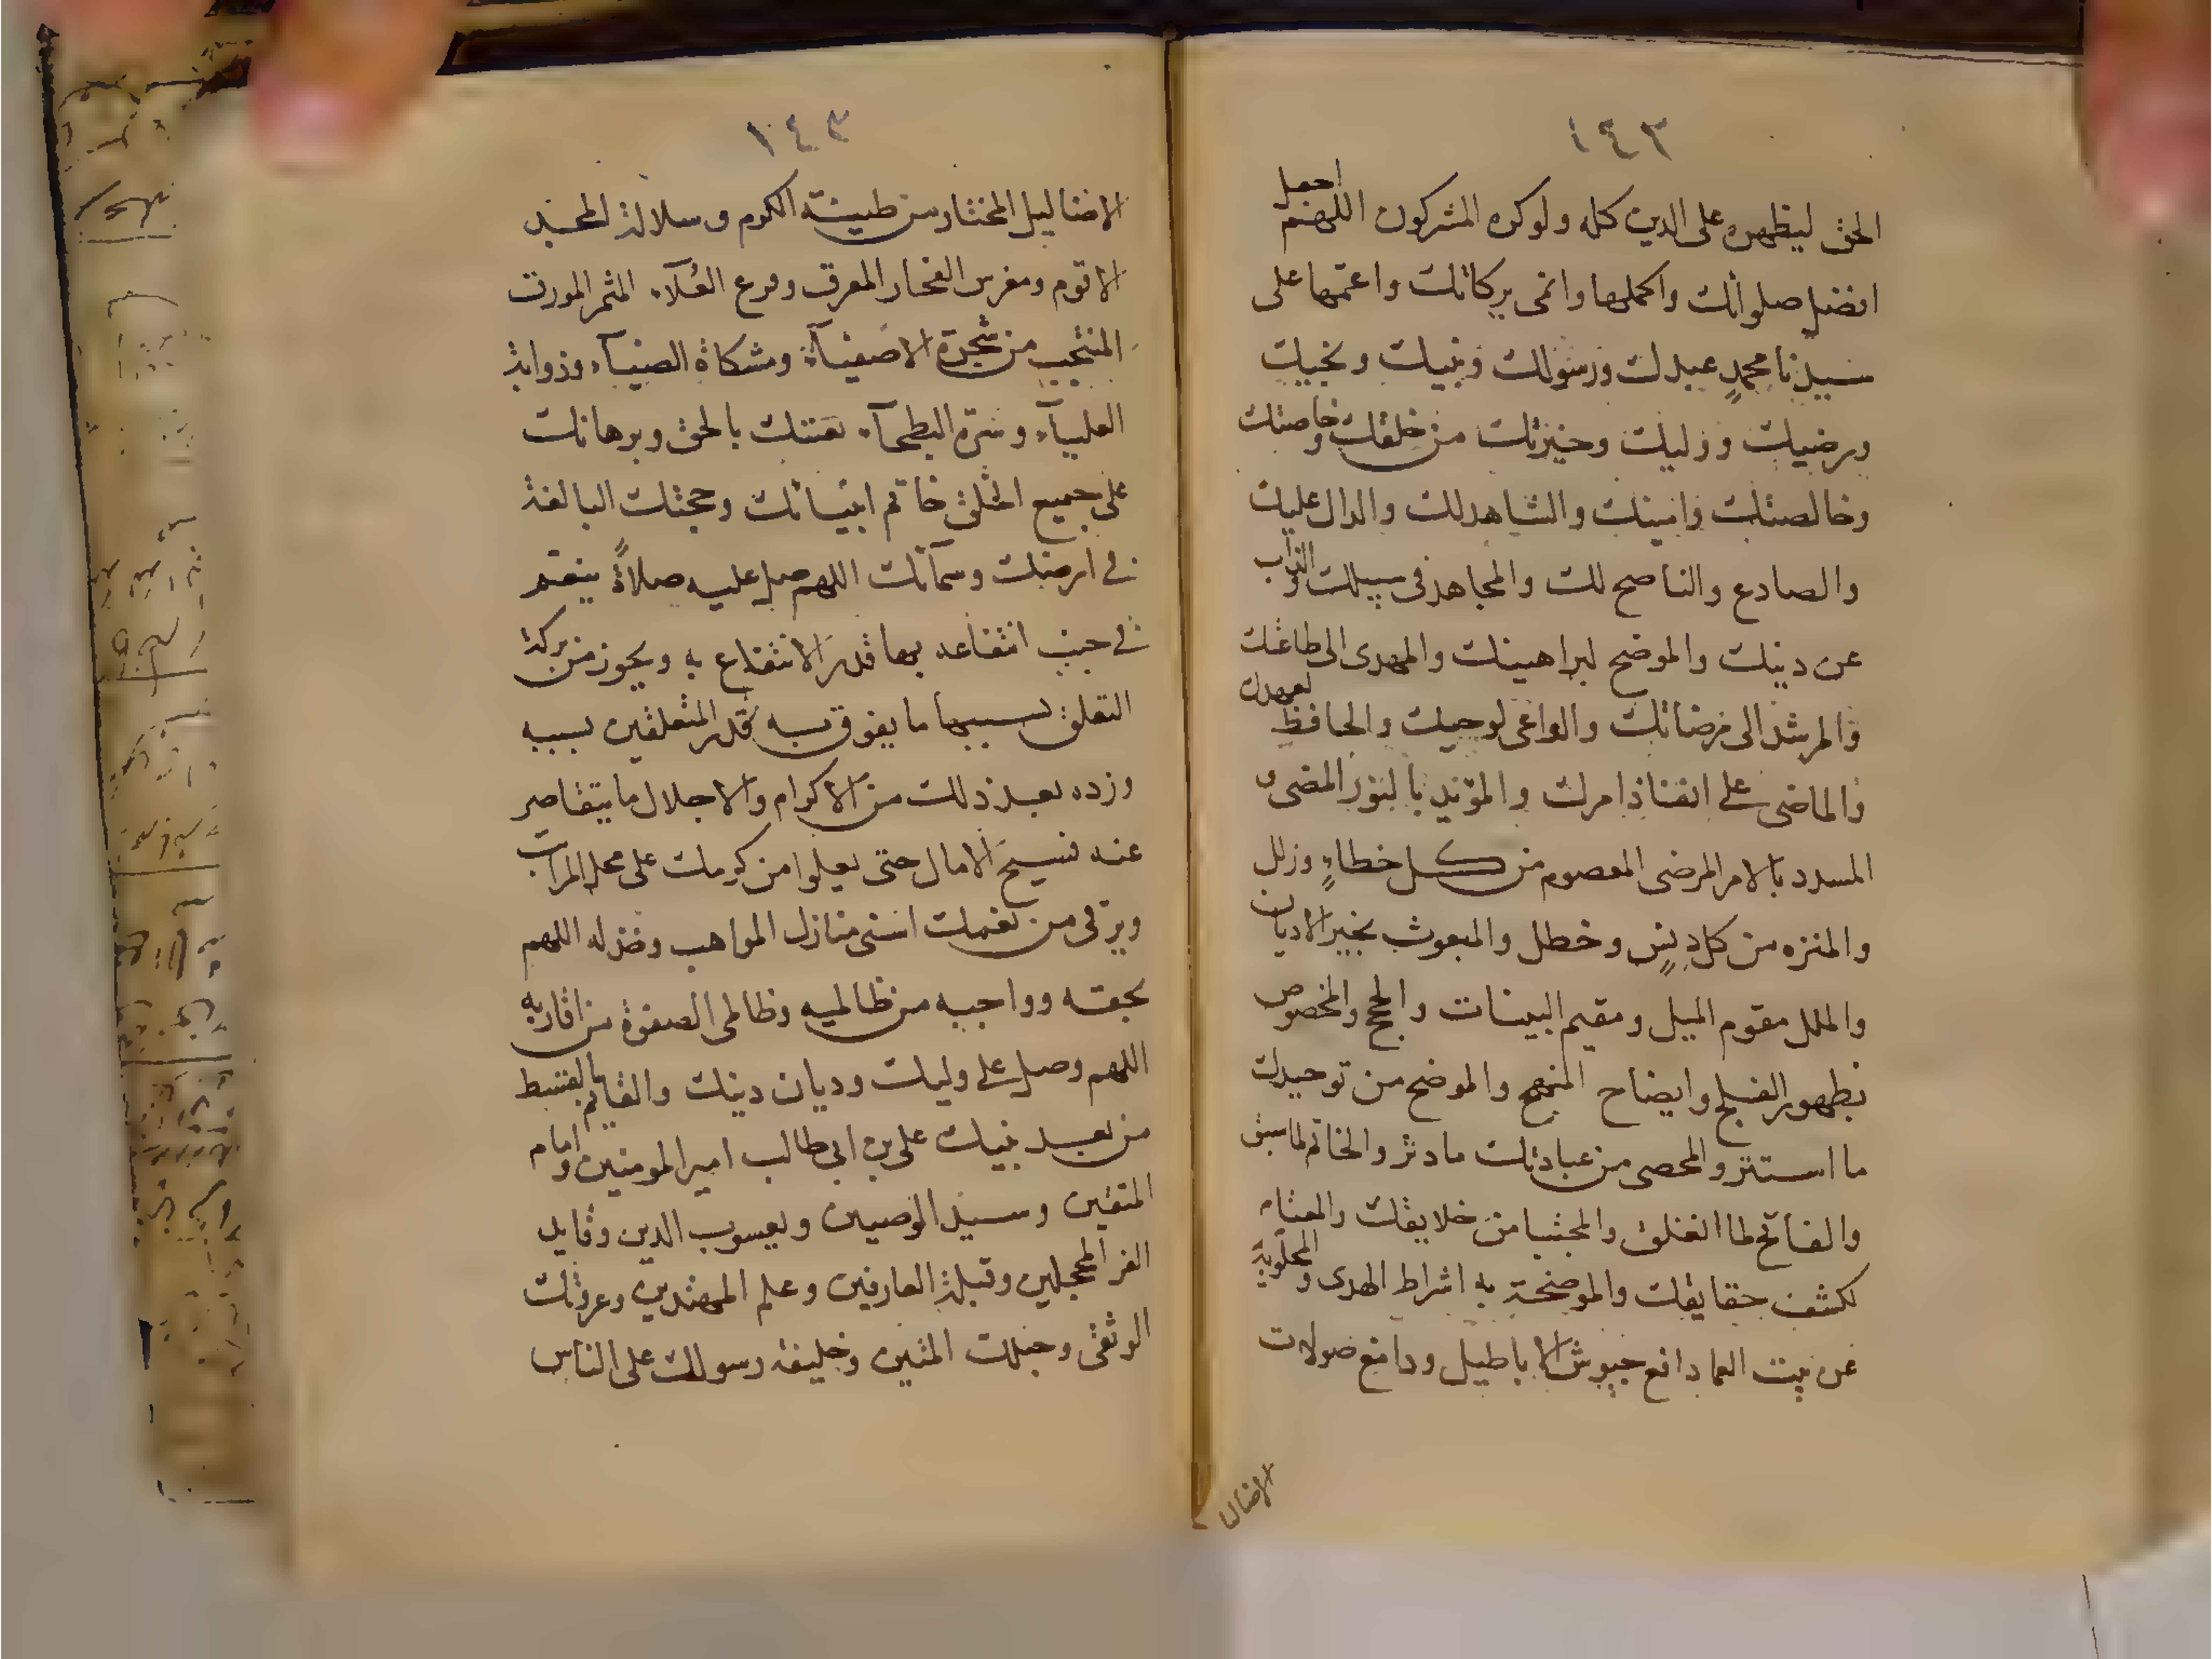 ١٤٣
الحق ليظهره على الدين كله ولوكره المشركون اللهم اجعل
افضل صلواتك واكملها وانمى بركاتك واعمها على
سيدنا محمدٍ عبدك ورسولك ونبيك ونجيك
ورضيك ووليك وخيرتك من خلقك وخاصتك
وخالصتك وامينك والشاهد لك والدال عليك
والصادع والناصح لك والمجاهد فى سبيلك والذاب
عن دينك والموضح لبراهينك والمهدى الى طاعتك
والمرشد الى مرضاتك والواعى لوحيك والحافظ لعهدك
والماضى على انفاذ امرك والمؤيد بالنور المضى
المسدد بالامر المرضى المعصوم من كل خطاءٍ وزلل
والمنزه من كل دنسٍ وخطل والمبعوث بخير الاديان
والملل مقوم الميل ومقيم البينات والحجج والمخصوص
بظهور الفلج وايضاح المنهج والموضح من توحيدك
ما استتر والمحصى من عبادتك ما دثر والخاتم لما سبق
والفاتح لما انغلق والمجتبا من خلايقك والمعتام
لكشف حقايقك والموضحة به اشراط الهدى والمجلوبة
عن بيت العما دافع جيوش الاباطيل ودامغ صولات
الاضاليل
١٤٣
الاضاليل المختار من طينة الكرم وسلالة المجد
الاقوم ومغرس الفخار المعرق وفرع العُلآء المثمر المورق
المنتجب من شجرة الاصفيآء ومشكاة الضيآء وذوابة
العليآء وسرة البطحآء بعثتك بالحق وبرهانك
على جميع الخلق خاتم انبيائك وحجتك البالغة
فى ارضك وسمآئك اللهم صل عليه صلاةً ينغمر
فى جنب انتفاعه بها قدر الانتفاع به ويحوز من بركة
التعلق بسببها ما يفوق به قدر المتعلقين بسببه
وزده بعد ذلك من الاكرام والاجلال ما يتقاصر
عنه فسيح الامال حتى يعلوا من كرمك على محل المراتب
ويرقى من نعمك اسنى منازل المواهب وخذ له اللهم
بحقه وواجبه من ظالميه وظالمى الصفوة من اقاربه
اللهم وصل على وليك وديان دينك والقايم بالقسط
من بعد نبيك على بن ابى طالب امير المومنين وامام
المتقين وسيد الوصيين ويعسوب الدين وقايد
الغر المحجلين وقبلة العارفين وعلم المهتدين وعروتك
الوثقى وحبلك المتين وخليفة رسولك على الناس